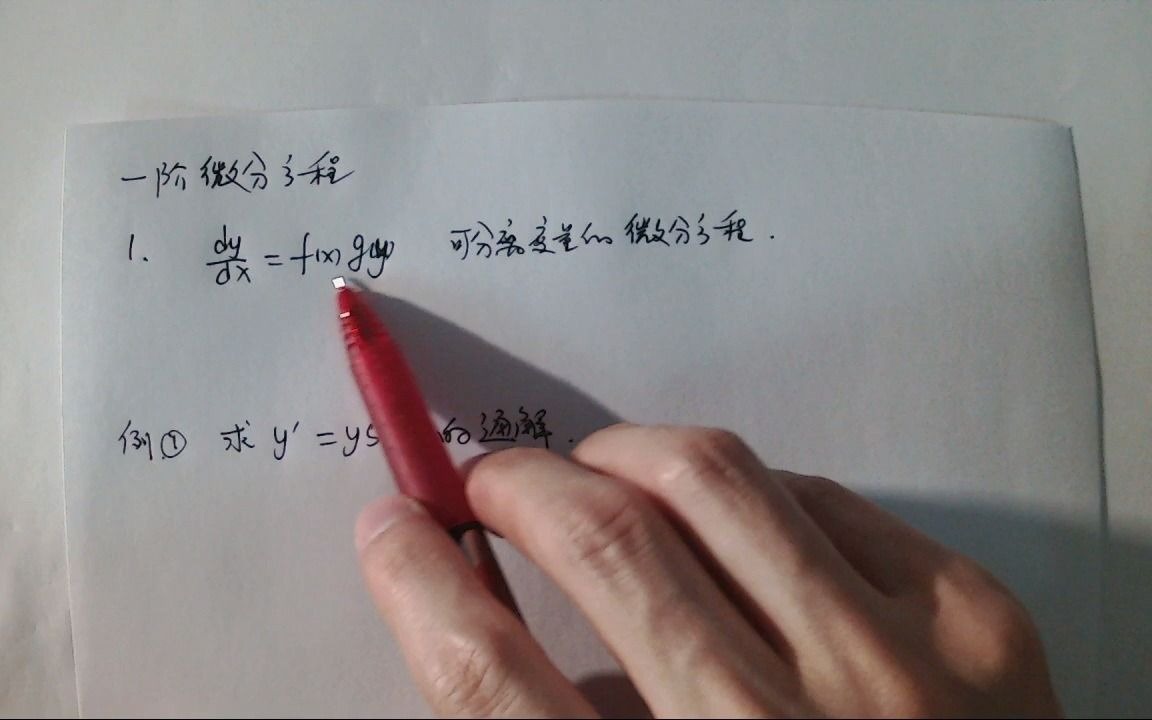 一阶微分方程
1. dy/dx = f(x) g(y) 可分离变量的微分方程.
例① 求 y' = y 的通解.